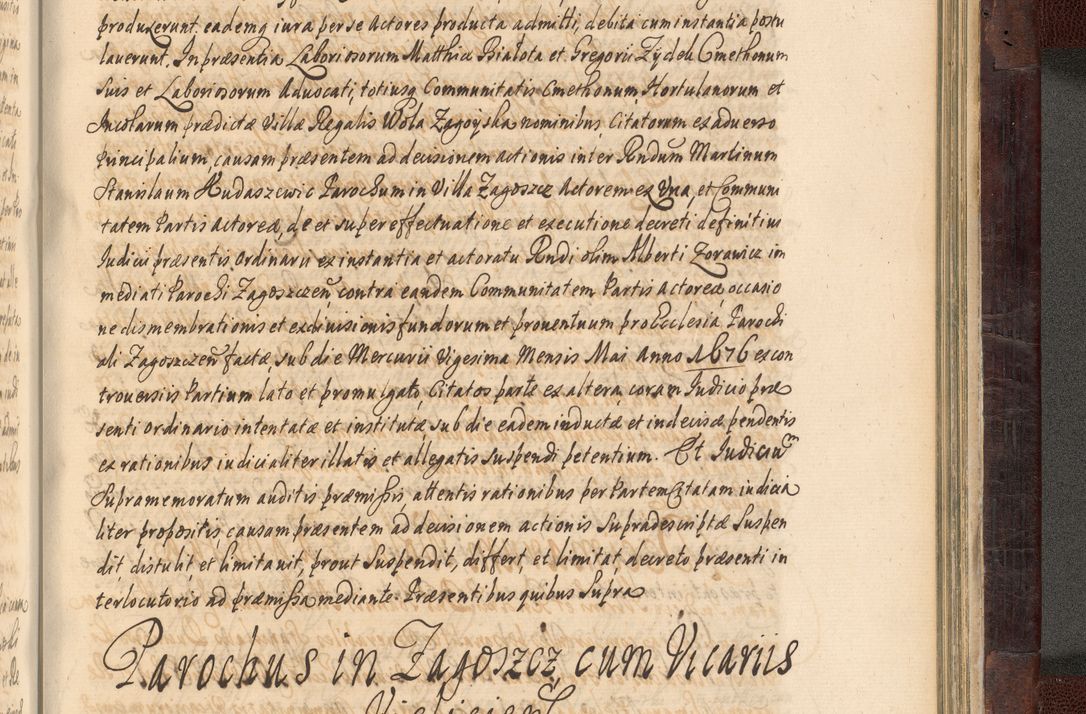 produxerunt. eademq iura per se Actores producta admitti, debita cum instantia postu
laverunt. In præsentia Laboriosorum Matthiæ Białota et Gregorii Zydek Cmethonum
suis et Laboriosorum Advocati, totiusq Communitatis Cmethonum, Hortulanorum et
Incolarum prædictæ Villæ Regalis Wola Zagoyska nominibus, Citatorum ex adverso
principalium, causam præsentem ad decisionem actionis inter Rndum Martinum
Stanislaum Rudaszewic Parochum in Villa Zagoszcz Actorem ex Una, et Communi
tatem Partis Actoreæ, de et super effectuatione et executione decreti definitivi
Iudicii præsentis ordinarii ex instantia et actoratu Rndi olim Alberti Zorawicz im
mediati Parochi Zagoszczen, contra eandem Communitatem Partis Actoreæ occasio
ne dismembrationis et exdivisionis fundorum et proventuum pro Ecclesia Parochi
ali Zagoszczen factæ, sub die Mercurii Vigesima Mensis Mai Anno 1676 ex con
troversiis Partium lato et promulgato, Citatos parte ex altera coram Iudicio præ
senti ordinario intentatæ et institutæ, sub die eadem inductæ et indecisæ pendentis
ex rationibus iudicialiter illatis et allegatis suspendi petentium. Et Iudicium
Supramemoratum auditis præmissis, attentis rationibus per Partem Citatam iudicia
liter propositis, causam præsentem ad decisionem actionis Supradescriptæ Suspen
dit, distulit, et limitavit, prout Suspendit, differt, et limitat, decreto præsenti in
terlocutorio ad præmissa mediante. Præsentibus quibus Supra
Parochus in Zagoszcz, cum Vicariis